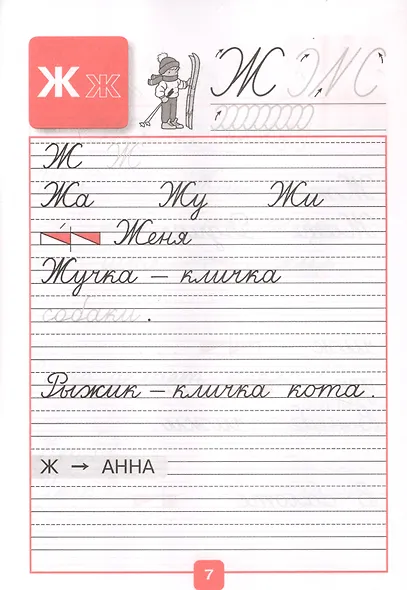 Ж ж Ж
Ж Ж
Жа Жу Жи
Женя
Жучка – кличка
собаки.
Рыжик – кличка кота.
Ж → АННА
7